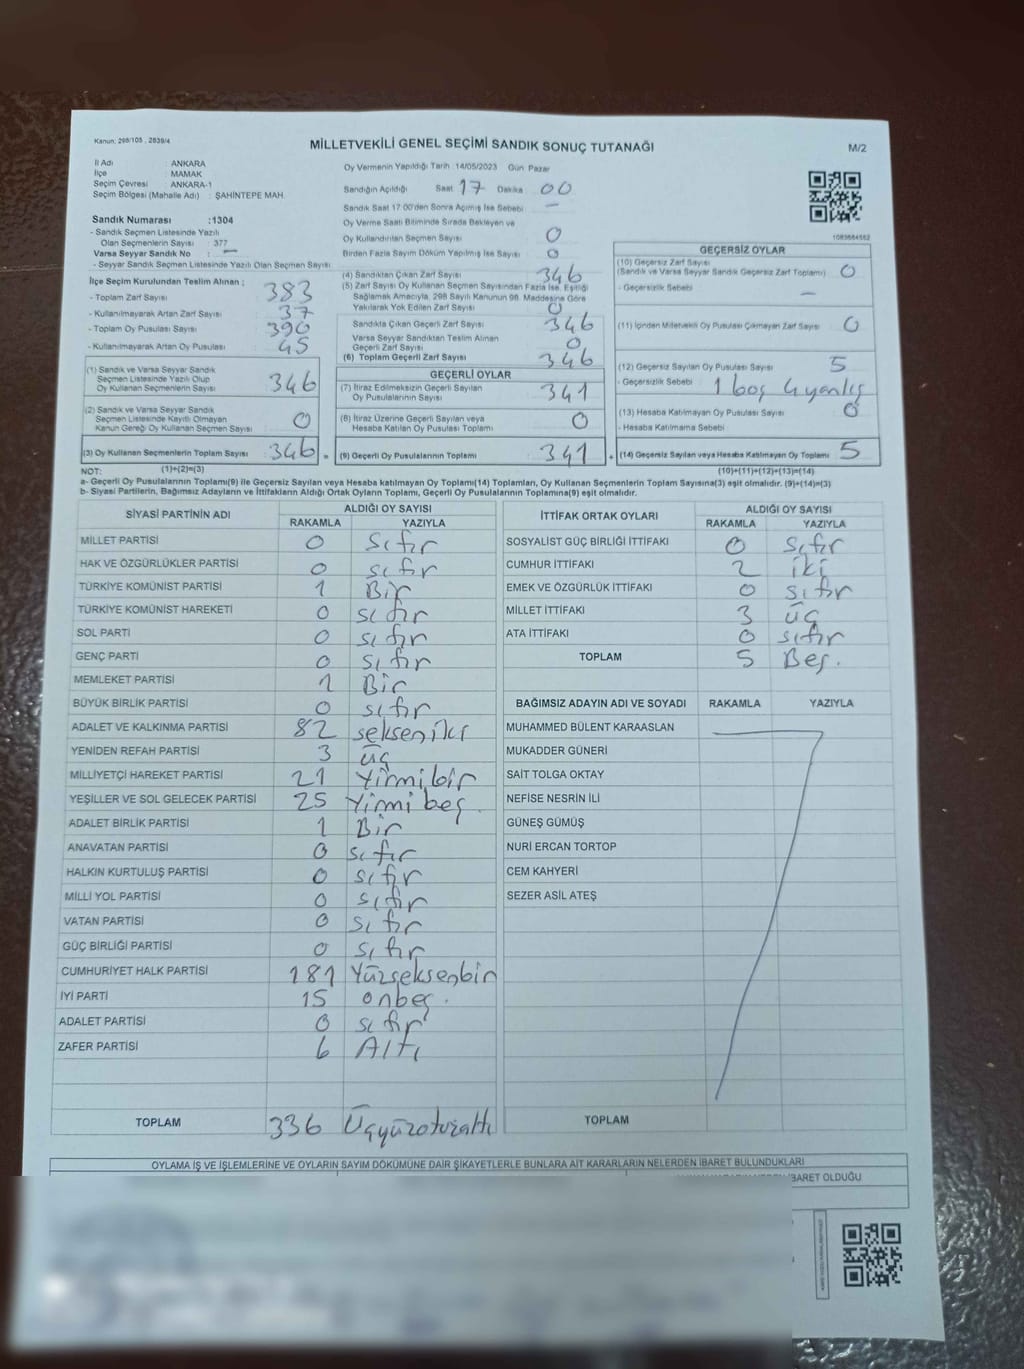 Kanun: 298/105 , 2839/4
MİLLETVEKİLİ GENEL SEÇİMİ SANDIK SONUÇ TUTANAĞI
M/2
İl Adı : ANKARA
İlçe : MAMAK
Seçim Çevresi : ANKARA-1
Seçim Bölgesi (Mahalle Adı) : ŞAHİNTEPE MAH.
Sandık Numarası :1304
- Sandık Seçmen Listesinde Yazılı
Olan Seçmenlerin Sayısı : 377
Varsa Seyyar Sandık No : —
- Seyyar Sandık Seçmen Listesinde Yazılı Olan Seçmen Sayısı:
İlçe Seçim Kurulundan Teslim Alınan ;
- Toplam Zarf Sayısı 383
- Kullanılmayarak Artan Zarf Sayısı 37
- Toplam Oy Pusulası Sayısı 390
- Kullanılmayarak Artan Oy Pusulası 45
(1) Sandık ve Varsa Seyyar Sandık
Seçmen Listesinde Yazılı Olup
Oy Kullanan Seçmenlerin Sayısı 346
(2) Sandık ve Varsa Seyyar Sandık
Seçmen Listesinde Kayıtlı Olmayan
Kanun Gereği Oy Kullanan Seçmen Sayısı 0
(3) Oy Kullanan Seçmenlerin Toplam Sayısı 346 =
Oy Vermenin Yapıldığı Tarih 14/05/2023 Gün Pazar
Sandığın Açıldığı Saat 17 Dakika 00
Sandık Saat 17:00'den Sonra Açılmış İse Sebebi —
Oy Verme Saati Bitiminde Sırada Bekleyen ve
Oy Kullandırılan Seçmen Sayısı 0
Birden Fazla Sayım Döküm Yapılmış İse Sayısı 0
(4) Sandıktan Çıkan Zarf Sayısı 346
(5) Zarf Sayısı Oy Kullanan Seçmen Sayısından Fazla İse, Eşitliği
Sağlamak Amacıyla, 298 Sayılı Kanunun 98. Maddesine Göre
Yakılarak Yok Edilen Zarf Sayısı 0
Sandıkta Çıkan Geçerli Zarf Sayısı 346
Varsa Seyyar Sandıktan Teslim Alınan
Geçerli Zarf Sayısı 0
(6) Toplam Geçerli Zarf Sayısı 346
GEÇERLİ OYLAR
(7) İtiraz Edilmeksizin Geçerli Sayılan
Oy Pusulalarının Sayısı 341
(8) İtiraz Üzerine Geçerli Sayılan veya
Hesaba Katılan Oy Pusulası Toplamı 0
(9) Geçerli Oy Pusulalarının Toplamı 341 +
1083664562
GEÇERSİZ OYLAR
(10) Geçersiz Zarf Sayısı
(Sandık ve Varsa Seyyar Sandık Geçersiz Zarf Toplamı) 0
- Geçersizlik Sebebi —
(11) İçinden Milletvekili Oy Pusulası Çıkmayan Zarf Sayısı 0
(12) Geçersiz Sayılan Oy Pusulası Sayısı 5
- Geçersizlik Sebebi 1 boş 4 yanlış
(13) Hesaba Katılmayan Oy Pusulası Sayısı 0
- Hesaba Katılmama Sebebi
(14) Geçersiz Sayılan veya Hesaba Katılmayan Oy Toplamı 5
NOT: (1)+(2)=(3) (10)+(11)+(12)+(13)=(14)
a- Geçerli Oy Pusulalarının Toplamı(9) ile Geçersiz Sayılan veya Hesaba katılmayan Oy Toplamı(14) Toplamları, Oy Kullanan Seçmenlerin Toplam Sayısına(3) eşit olmalıdır. (9)+(14)=(3)
b- Siyasi Partilerin, Bağımsız Adayların ve İttifakların Aldığı Ortak Oyların Toplamı, Geçerli Oy Pusulalarının Toplamına(9) eşit olmalıdır.
SİYASİ PARTİNİN ADI ALDIĞI OY SAYISI
RAKAMLA YAZIYLA
MİLLET PARTİSİ 0 sıfır
HAK VE ÖZGÜRLÜKLER PARTİSİ 0 sıfır
TÜRKİYE KOMÜNİST PARTİSİ 1 Bir
TÜRKİYE KOMÜNİST HAREKETİ 0 sıfır
SOL PARTİ 0 sıfır
GENÇ PARTİ 0 sıfır
MEMLEKET PARTİSİ 1 Bir
BÜYÜK BİRLİK PARTİSİ 0 sıfır
ADALET VE KALKINMA PARTİSİ 82 sekseniki
YENİDEN REFAH PARTİSİ 3 üç
MİLLİYETÇİ HAREKET PARTİSİ 21 Yirmibir
YEŞİLLER VE SOL GELECEK PARTİSİ 25 Yirmi beş.
ADALET BİRLİK PARTİSİ 1 Bir
ANAVATAN PARTİSİ 0 sıfır
HALKIN KURTULUŞ PARTİSİ 0 sıfır
MİLLİ YOL PARTİSİ 0 sıfır
VATAN PARTİSİ 0 sıfır
GÜÇ BİRLİĞİ PARTİSİ 0 sıfır
CUMHURİYET HALK PARTİSİ 181 Yüzseksenbir
İYİ PARTİ 15 onbeş.
ADALET PARTİSİ 0 sıfır
ZAFER PARTİSİ 6 Altı
TOPLAM 336 Üçyüzotuzaltı
İTTİFAK ORTAK OYLARI ALDIĞI OY SAYISI
RAKAMLA YAZIYLA
SOSYALİST GÜÇ BİRLİĞİ İTTİFAKI 0 sıfır
CUMHUR İTTİFAKI 2 iki
EMEK VE ÖZGÜRLÜK İTTİFAKI 0 sıfır
MİLLET İTTİFAKI 3 üç
ATA İTTİFAKI 0 sıfır
TOPLAM 5 Beş.
BAĞIMSIZ ADAYIN ADI VE SOYADI RAKAMLA YAZIYLA
MUHAMMED BÜLENT KARAASLAN
MUKADDER GÜNERİ
SAİT TOLGA OKTAY
NEFİSE NESRİN İLİ
GÜNEŞ GÜMÜŞ
NURİ ERCAN TORTOP
CEM KAHYERİ
SEZER ASİL ATEŞ
TOPLAM
OYLAMA İŞ VE İŞLEMLERİNE VE OYLARIN SAYIM DÖKÜMÜNE DAİR ŞİKAYETLERLE BUNLARA AİT KARARLARIN NELERDEN İBARET BULUNDUKLARI
İBARET OLDUĞU